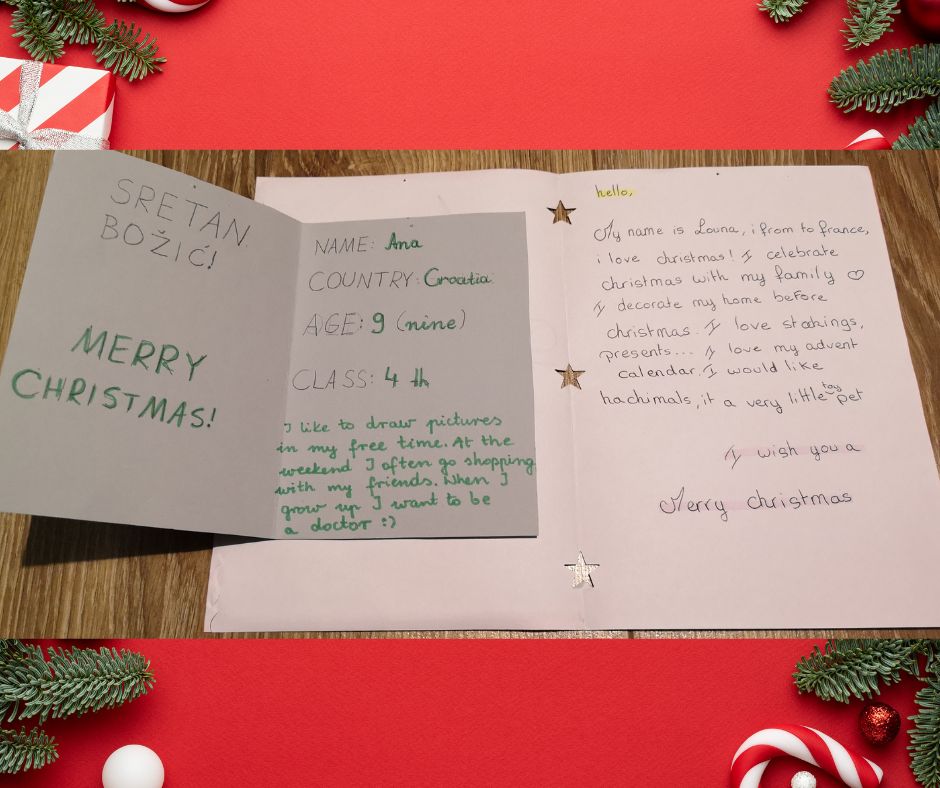 SRETAN
BOŽIĆ!
MERRY
CHRISTMAS!
NAME: Ana
COUNTRY: Croatia
AGE: 9 (nine)
CLASS: 4 th
I like to draw pictures
in my free time. At the
weekend I often go shopping
with my friends. When I
grow up I want to be
a doctor :)
hello,
My name is Louna, i from to france,
i love christmas! I celebrate
christmas with my family ♡
I decorate my home before
christmas. I love stockings,
presents... I love my advent
calendar, I would like
hachimals, it a very little toy pet
I wish you a
Merry christmas